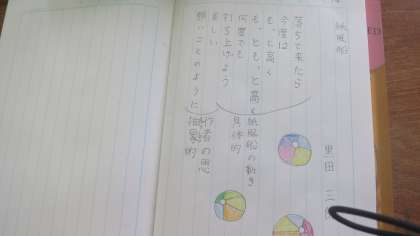 紙風船
黒田 三
落ちて来たら
今度は
もっと高く
もっともっと高く
何度でも
打ち上げよう
美しい
願いごとのように
紙風船の動き
具体的
作者の思い
抽象的